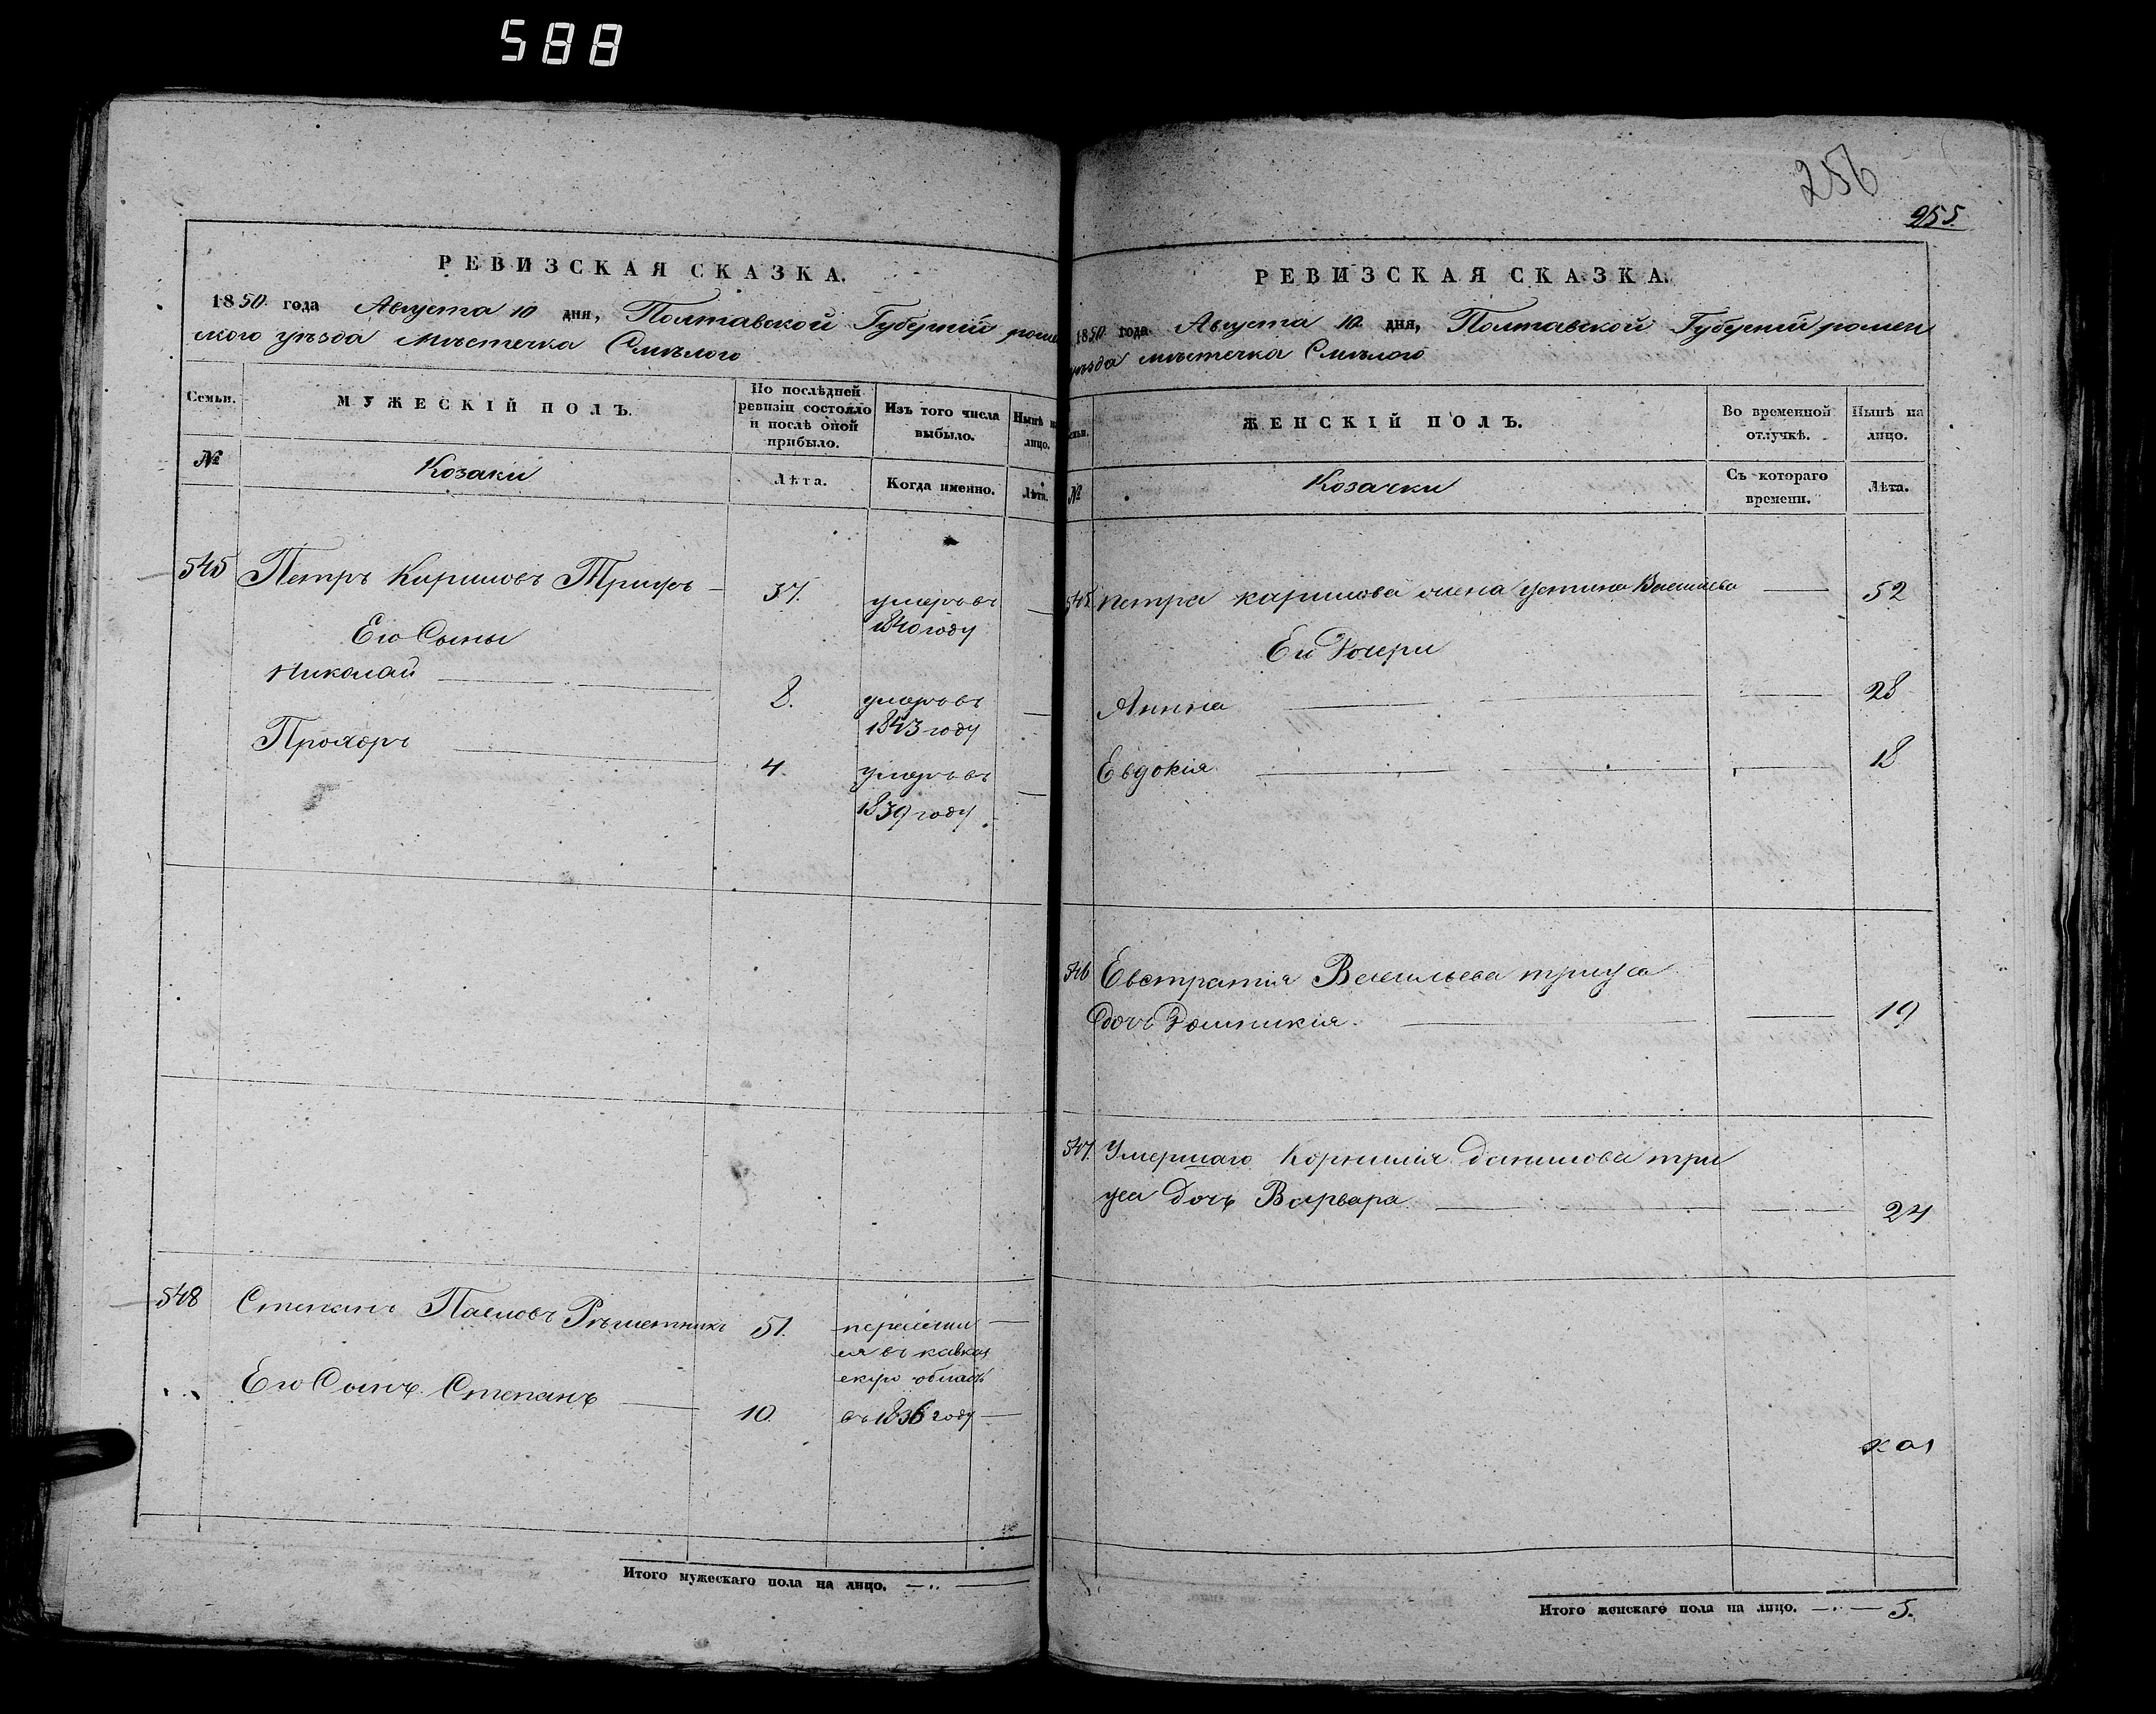 588
РЕВИЗСКАЯ СКАЗКА.
1850 года Августа 10 дня, Полтавской Губерніи роме
нского уѣзда мѣстечка Смѣлого
Семьи.
МУЖЕСКІЙ ПОЛЪ.
По послѣдней ревизіи состояло и послѣ оной прибыло.
Изъ того числа выбыло.
Нынѣ на лицо.
№
Козаки
Лѣта.
Когда именно.
Лѣта.
545 Петръ Кириловъ Триусъ 37. умеръ въ
1840 году
Его Сыны
Николай 8. умеръ въ
1843 году
Прохоръ 4. умеръ въ
1839 году
548 Степанъ Павловъ Рѣшетникъ 51. переселил
ся въ кавказ
скую область
Его Сынъ Степанъ 10. въ 1836 году
Итого мужескаго пола на лицо.
256
255.
РЕВИЗСКАЯ СКАЗКА.
1850 года Августа 10 дня, Полтавской Губерніи ромен
уѣзда мѣстечка Смѣлого
Семьи.
ЖЕНСКІЙ ПОЛЪ.
Во временной отлучкѣ.
Нынѣ на лицо.
№
Козачки
Съ котораго времени.
Лѣта.
545 Петра Карилова жена Устина Васильева 52
Еи Дочери
Анна 28
Евдокія 18
546 Евстратія Васильева триуса
дочь Домникія. 19
547. Умершаго Корнилія данилова три
уса Дочь Варвара 24
Итого женскаго пола на лицо. 5.